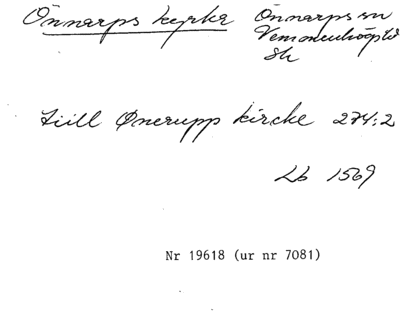 Önnarps kyrka Önnarps sn
Vemmenhögs hd
Sk
tiill Ønerupp kircke 274:2
Lb 1569
Nr 19618 (ur nr 7081)